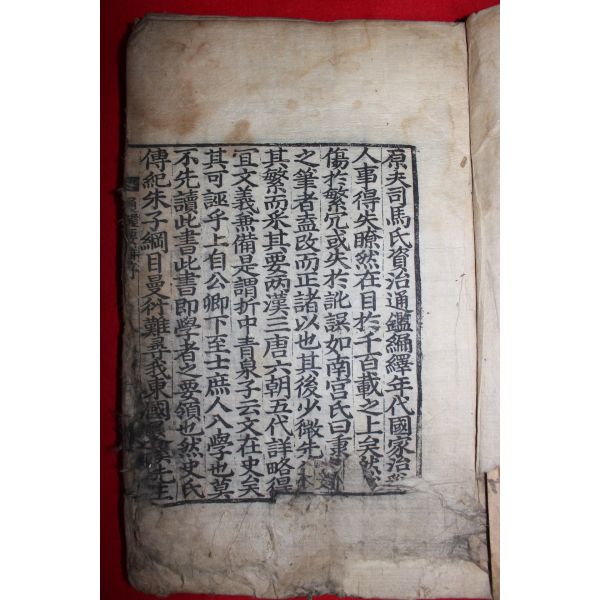 原夫司馬氏資治通鑑編繹年代國家治
人事得失瞭然在目於千百載之上矣然
傷於繁冗或失於訛誤如南宮氏曰秉
之筆者盍改而正諸以也其後少微先
其繁而采其要兩漢三唐六朝五代詳略得
宜文義兼備是謂折中青泉子云文在史矣
其可誣乎上自公卿下至士庶人入學也莫
不先讀此書此書即學者之要領也然史氏
傳紀朱子綱目曼衍難尋我東國先生